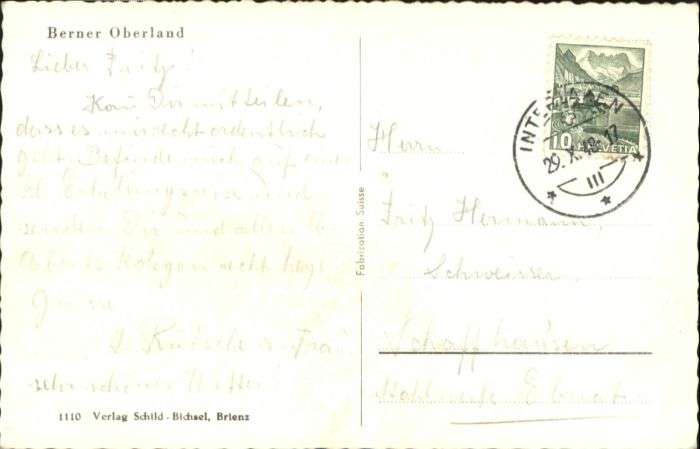 Berner Oberland
Lieber Fritz!
Kan Dir mitteilen,
dass es mir recht ordentlich
geht. Befinde mich auf
und
senden Dir und allen
recht herzl.
Grüsse
u. Frau.
sehr schönes Wetter!
1110 Verlag Schild-Bichsel, Brienz
Fabrication Suisse
INTERLAKEN
29. X. 48. 17
III
10
HELVETIA
Herrn
Fritz Hermann,
Schweisser
Schaffhausen